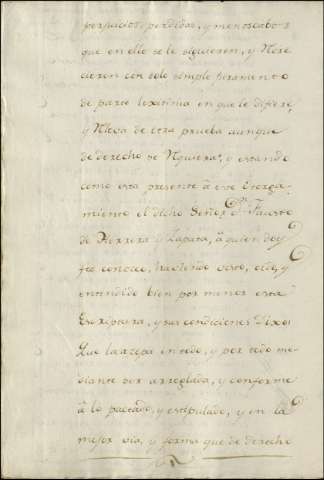 perjuicios, perdidas, y menoscabos
que en ello se le siguieren, y Nore
cieren con solo simple juramento
de parte lexitima en que le difiere,
y Nleva de otra prueba aunque
de derecho se Nquiera, y estando
como esta presente â este Otorga
miento el dicho Señor Dn. Fausto
de Herrera y Zapata, â quien doy
fee conozco, haviendo visto, oido, y
entendido bien por menor esta
Escriptura, y sus condiciones Dixo:
Que la azepta en todo, y por todo me-
diante ser arreglada, y conforme
â lo pactado, y estipulado, y en la
mejor via, y forma que de derecho